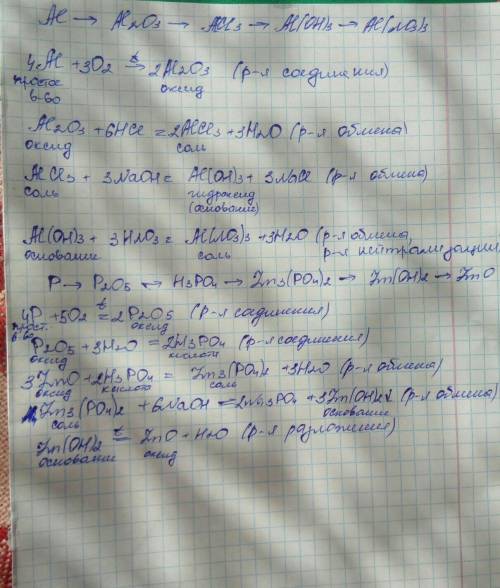 Al → Al2O3 → AlCl3 → Al(OH)3 → Al(NO3)3
4Al + 3O2 t→ 2Al2O3 (р-я соединения)
простое в-во оксид
Al2O3 + 6HCl = 2AlCl3 + 3H2O (р-я обмена)
оксид соль
AlCl3 + 3NaOH = Al(OH)3 + 3NaCl (р-я обмена)
соль гидроксид
(основание)
Al(OH)3 + 3HNO3 = Al(NO3)3 + 3H2O (р-я обмена,
основание соль р-я нейтрализации)
P → P2O5 → H3PO4 → Zn3(PO4)2 → Zn(OH)2 → ZnO
4P + 5O2 t= 2P2O5 (р-я соединения)
прост. в-во оксид
P2O5 + 3H2O = 2H3PO4 (р-я соединения)
оксид кислота
3ZnO + 2H3PO4 = Zn3(PO4)2 + 3H2O (р-я обмена)
оксид кислота соль
Zn3(PO4)2 + 6NaOH = 2Na3PO4 + 3Zn(OH)2 (р-я обмена)
соль основание
Zn(OH)2 t= ZnO + H2O (р-я разложения)
основание оксид